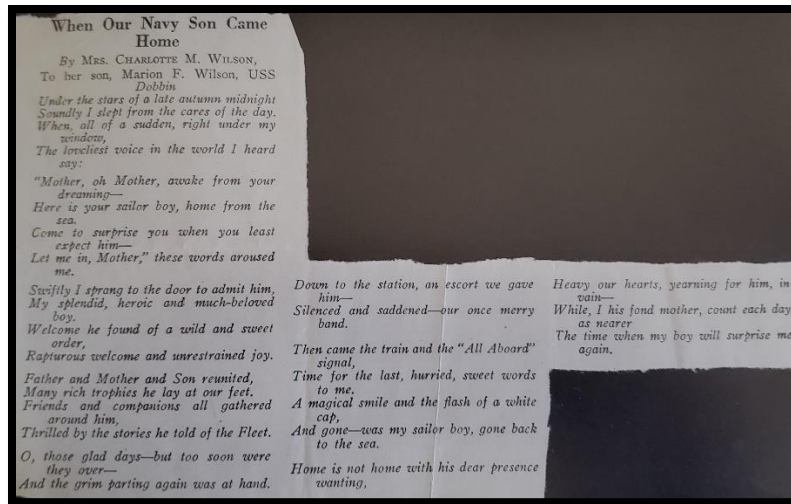 When Our Navy Son Came
Home
By MRS. CHARLOTTE M. WILSON,
To her son, Marion F. Wilson, USS
Dobbin
Under the stars of a late autumn midnight
Soundly I slept from the cares of the day.
When, all of a sudden, right under my
window,
The loveliest voice in the world I heard
say:
"Mother, oh Mother, awake from your
dreaming—
Here is your sailor boy, home from the
sea.
Come to surprise you when you least
expect him—
Let me in, Mother," these words aroused
me.
Swiftly I sprang to the door to admit him,
My splendid, heroic and much-beloved
boy.
Welcome he found of a wild and sweet
order,
Rapturous welcome and unrestrained joy.
Father and Mother and Son reunited,
Many rich trophies he lay at our feet.
Friends and companions all gathered
around him,
Thrilled by the stories he told of the Fleet.
O, those glad days—but too soon were
they over—
And the grim parting again was at hand.
Down to the station, an escort we gave
him—
Silenced and saddened—our once merry
band.
Then came the train and the "All Aboard"
signal,
Time for the last, hurried, sweet words
to me.
A magical smile and the flash of a white
cap,
And gone—was my sailor boy, gone back
to the sea.
Home is not home with his dear presence
wanting,
Heavy our hearts, yearning for him, in
vain—
While, I his fond mother, count each day
as nearer
The time when my boy will surprise me
again.